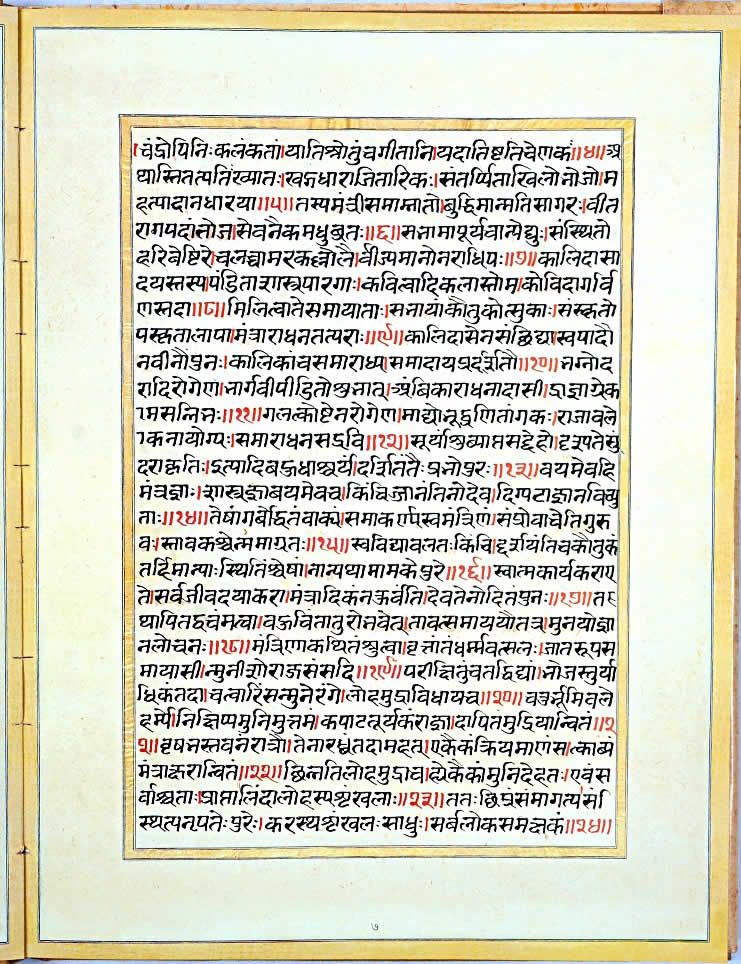 चंद्रोपिनिःकलंकतां।यातिश्रोतुंचगीतानि।यदातिष्टतिचैणकं॥४॥अ
थास्तितत्पतिःख्यातः।खड्गधाराजितारिकः।संतर्प्पिताखिलोनोजो।म
हत्यादानधारया॥५॥तस्यमंत्रीसमाम्नातो।बुद्धिमान्मतिसागरः।वीत
रागपदांनोज।सेवनैकमधुव्रतः॥६॥सनामापूर्यवान्येद्युः।संस्थितो
हरिवेष्टिरे।चलच्चामरकल्लोलै।र्वीज्यमानोनराधिपः॥७॥कालिदासा
दयस्तस्य।पंडिताशास्त्रपारगाः।कवित्वादिकलास्तोम।कोविदागर्वि
णस्तदा॥८॥मिलित्वातेसमायाताः।सनायांकौतुकोत्सुकाः।संस्कृतो
पस्कृतालापा।मंत्राराधनतत्पराः॥९॥कालिदासेनसंछिद्या।स्वपादौ
नवीनौपुनः।कालिकांचसमाराध्य।समादायप्रदर्शितौ॥१०॥नग्नोद
रादिरोगेण।नार्गवीपीडितोश्रुनात्।अंबिकाराधनादासी।द्राज्ञाग्रेक
ामसन्निनः॥११॥गलत्कोष्टेनरोगेण।माद्योनूद्व्रणितांगकः।राजावले
ाकनायोग्यः।समाराधनसद्रवि॥१२॥सूर्यांशुव्याप्तसद्देहो।दृश्यतेसुं
दराकृतिः।इत्यादिबहुधाश्चर्यं।दर्शितंतैःप्रनोपुरः॥१३॥वयमेवहि
मंत्रज्ञाः।शास्त्रज्ञावयमेवच।किंविजानंतिनोदेव।दिग्पटाज्ञानविच्यु
ताः॥१४॥तेषांगर्वोद्धितंवाक्यं।समाकर्ण्यस्वमंत्रिणं।संप्रोवाचेतिगुरु
वः।स्तावकश्चेत्समाग्रतः॥१५॥स्वविद्यावलतःकिंचि।द्दर्शयंतिचकौतुकं
तर्हिमान्याःस्थितिंश्चैषां।नान्यथामामकेपुरे॥१६॥स्वात्मकार्यकराए
ते।सर्वजीवदयाकरा।मंत्रादिकंनकुर्वंति।देवतेनोदितंपुनः॥१७॥तह
थापितद्वचंमत्वा।वक्रवितातुरोनवेत्।तावत्समाययौतत्र।मुनयोज्ञा
नलोचनः॥१८॥मंत्रिणाकथितंश्रुत्वा।वृत्तांतंधर्म्मवत्सलः।जातरूपस
मायासी।न्मुनीशोराजसंसदि॥१९॥परीक्षितुंवतद्विद्यां।नोजस्तुर्या
धिकंतदा।चत्वारिंसन्मुनेरंगे।लोहमुद्राविधायच॥२०॥वज्रर्नूमिवले
हर्म्ये।निक्षिप्यमुनिमुत्तमं।कपाटतूर्यकंराज्ञा।दापितंमुद्रियान्वितं॥२
१॥वृषनस्तवनंरात्रौ।तेनारब्धंतदामहत्।एकैकंक्रियमाणंस।त्काव्यं
मंत्राक्षरान्वितं॥२२॥छिनत्तिलोहमुद्राच।ह्येकैकांमुनिदेहतः।एवंस
र्वाश्च्युताः।प्राप्तालिंदालोहस्यशृंखलाः॥२३॥ततःछिप्रंसमागत्य।संा
स्थत्पनृपतेःपुरेः।करस्थशृंखलःसाधुः।सर्बलोकसमक्षकं॥२४॥
७